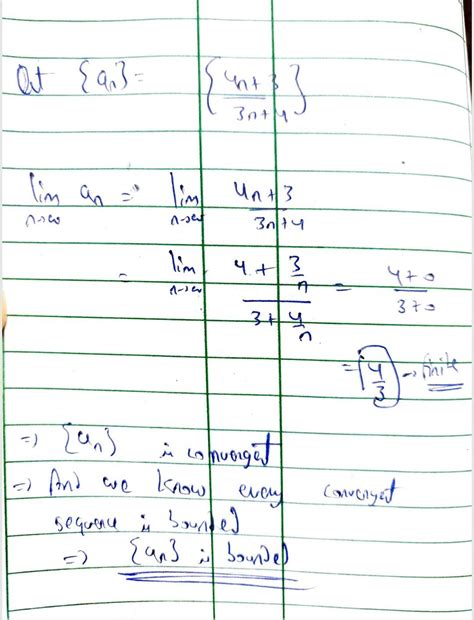 Let {an} = {4n+3 / 3n+4}
lim n→∞ an = lim n→∞ 4n+3 / 3n+4
= lim n→∞ 4 + 3/n / 3 + 4/n = 4+0 / 3+0
= 4/3 → finite
=> {an} is convergent
=> And we know every convergent
sequence is bounded
=> {an} is bounded